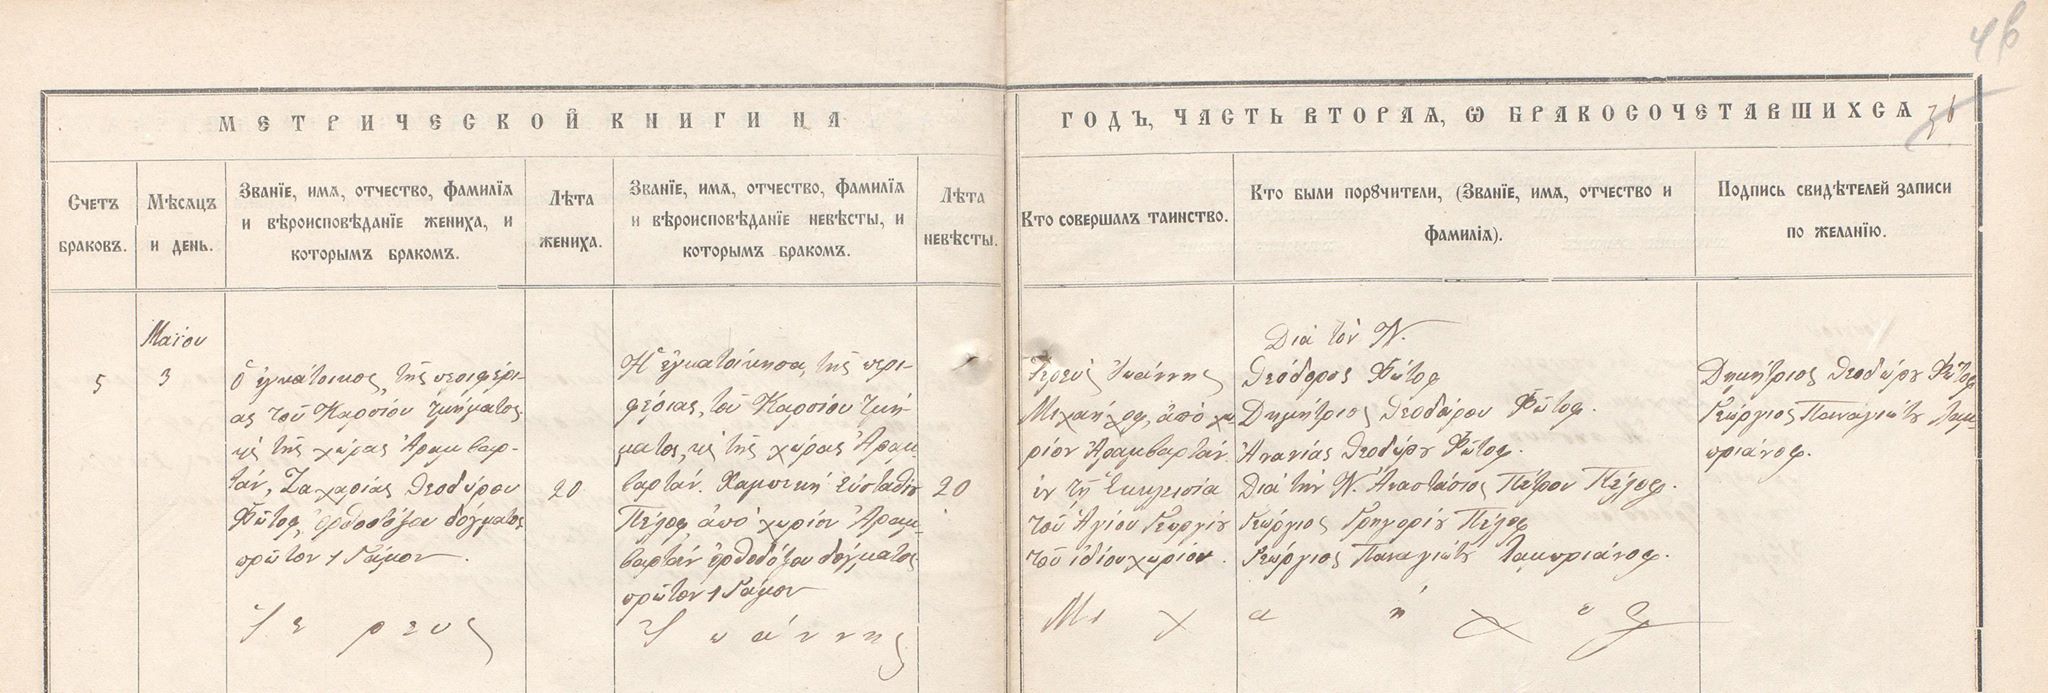 46
МЕТРИЧЕСКОЙ КНИГИ НА
ГОДЪ, ЧАСТЬ ВТОРАѦ, Ѡ БРАКОСОЧЕТАВШИХСѦ
36
Счетъ
браковъ.
Мѣсѧцъ
и день.
Званїе, имѧ, отчество, фамилїѧ
и вѣроисповѣданїе жениха, и
которымъ бракомъ.
Лѣта
жениха.
Званїе, имѧ, отчество, фамилїѧ
и вѣроисповѣданїе невѣсты, и
которымъ бракомъ.
Лѣта
невѣсты.
Кто совершалъ таинство.
Кто были порꙋчители, (Званїе, имѧ, отчество и
фамилїѧ).
Подпись свидѣтелей записи
по желанїю.
5
Μαΐου
3
Ὁ ἐγκάτοικος, τῆς περιφερί-
ας τοῦ Καρσίου τμήματος
τῆς χώρας Ἀραμβαρ-
τάν, Ζαχαρίας Θεοδώρου
Φῶτοφ, ὀρθοδόξου δόγματος
πρῶτον 1 Γάμον.
20
Ἡ ἐγκατοίκησα, τῆς περι-
φερίας, τοῦ Καρσίου τμή-
ματος, τῆς χώρας Ἀραμ-
βαρτάν. Εὐσταθίου
ἀπὸ χωρίον Ἀραμ-
βαρτάν ὀρθοδόξου δόγματος
πρῶτον 1 Γάμον
20
Ἱερεὺς Ἰωάννης
Μιχαήλοφ, ἀπὸ χω
ρίον Ἀραμβαρτάν.
ἐν τῇ Ἐκκλησία
τοῦ Ἁγίου Γεωργίου
τοῦ ἰδίου χωρίου.
Διὰ τὸν Ν.
Θεόδορος Φώτοφ
Δημήτριος Θεοδώρου Φῶτοφ.
Ἀνανίας Θεοδώρου Φῶτοφ.
Διὰ τὴν Ν. Ἀναστάσιος Πέτρου
Γεώργιος Γρηγορίου
Γεώργιος Παναγιώτου Λαμπριάνοφ.
Δημήτριος Θεοδώρου Φῶτοφ
Γεώργιος Παναγιώτου Λαμ-
πριάνοφ.
Ἱερεὺς Ἰωάννης